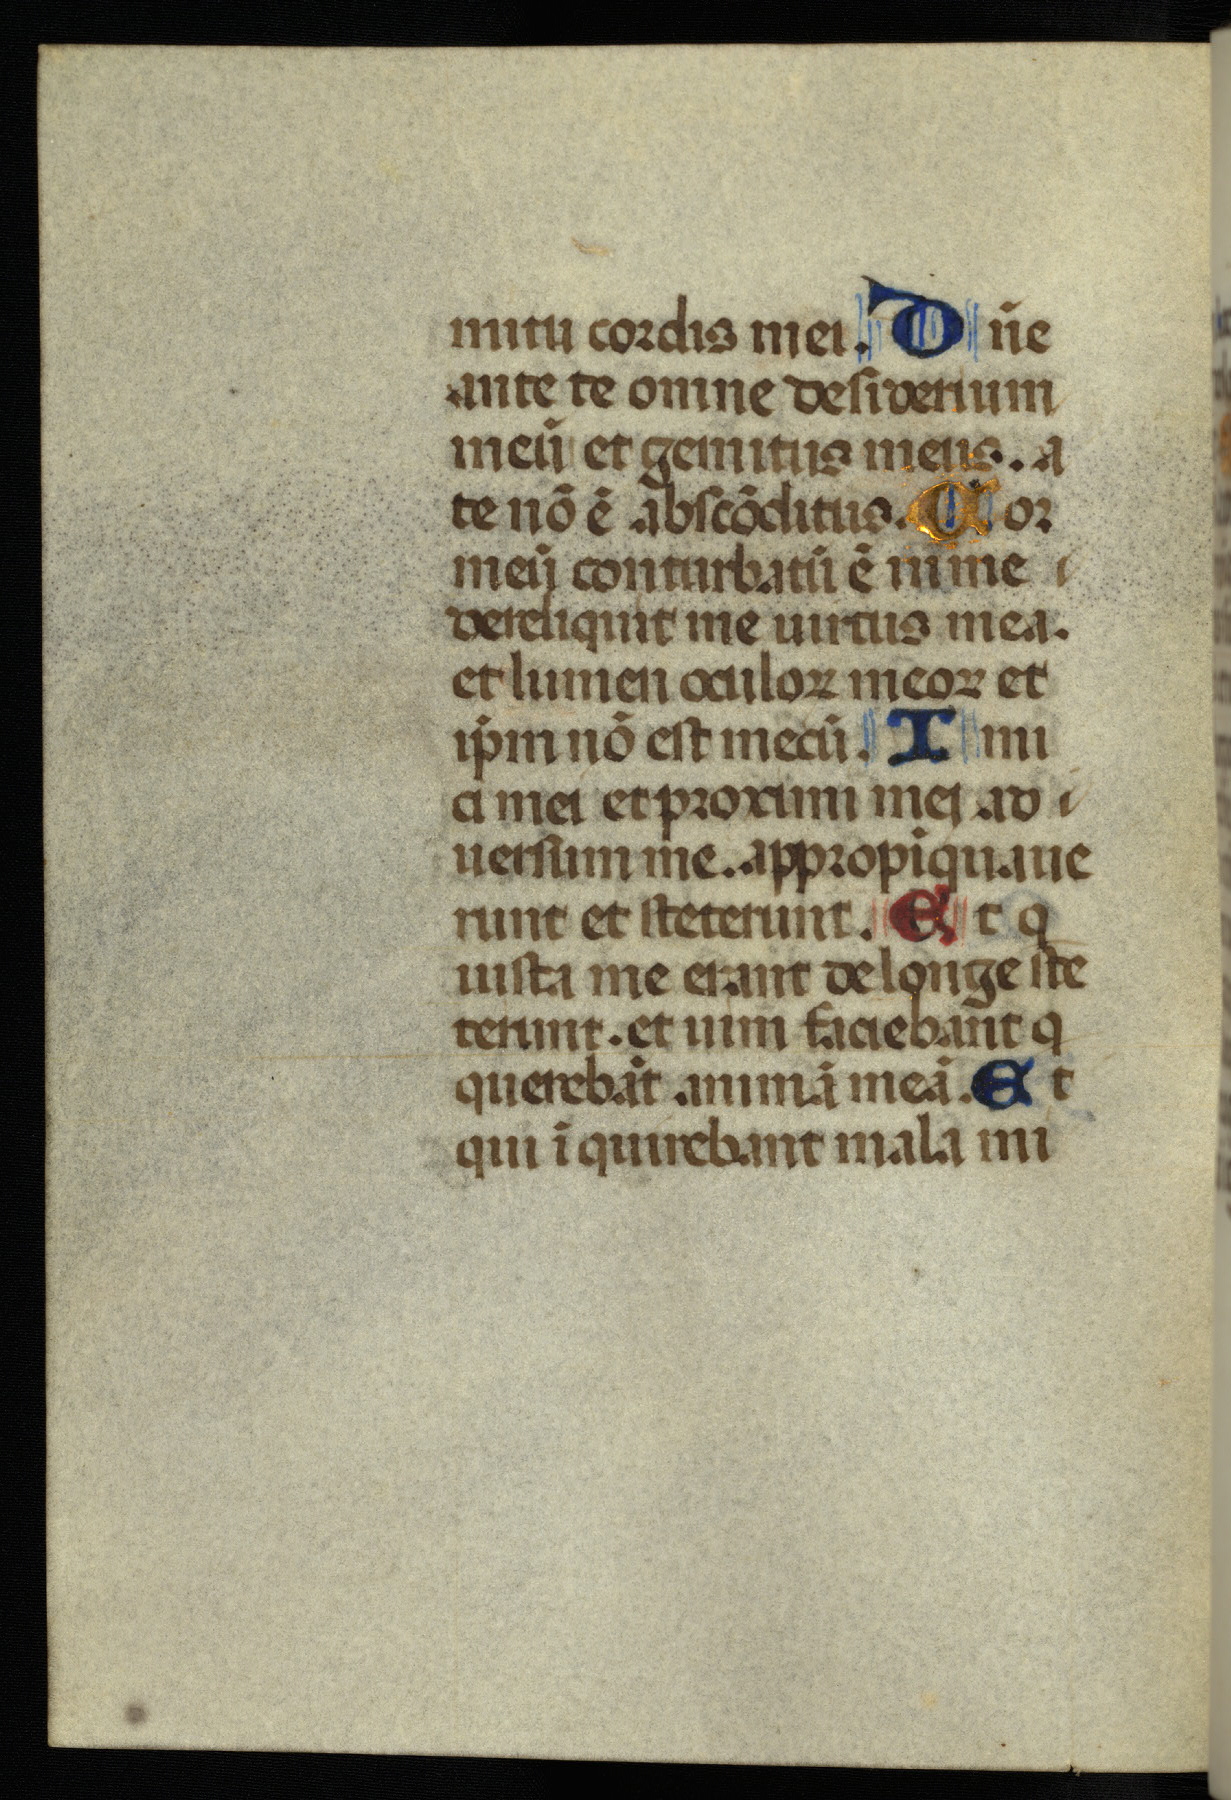 mitu cordis mei. D ñe
ante te omne desiderium
meū et gemitus meus. a
te nō ē abscōditus. C or
meū conturbatū ē in me
dereliquit me uirtus mea.
et lumen oculoꝝ meoꝝ et
ip̄m nō est mecū. I nni
ci mei et proximi mei ad
uersum me. appropiquaue
runt et steterunt. E t q
iuxta me erant de longe ste
terunt. et uim faciebant q
querebāt animā meā. E t
qui iquirebant mala mi